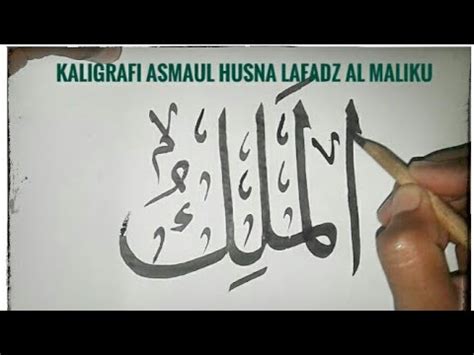 KALIGRAFI ASMAUL HUSNA LAFADZ AL MALIKU
المَلِكُ